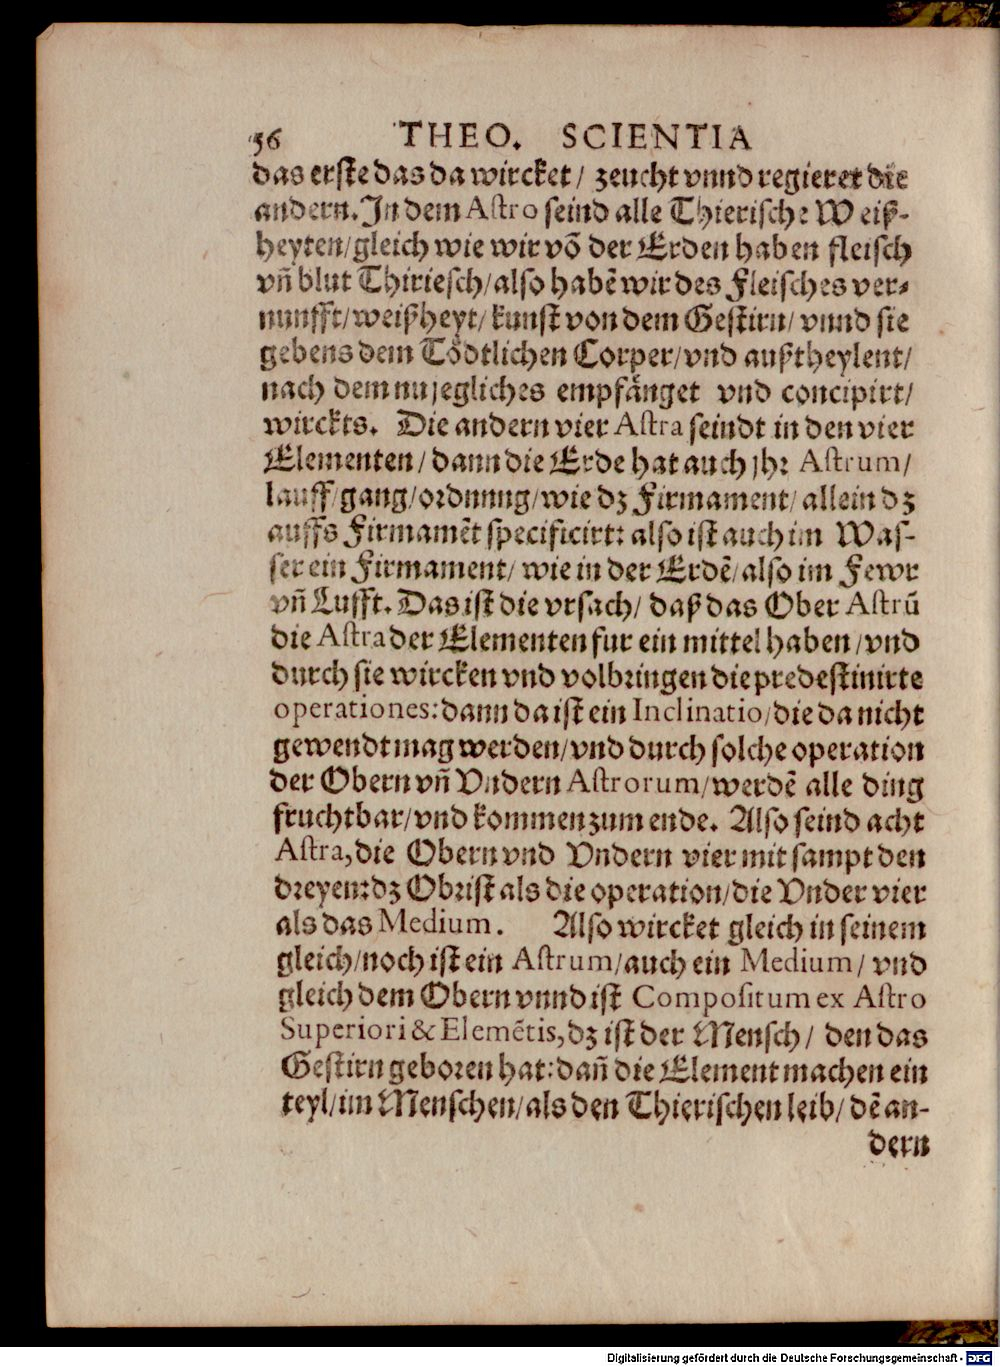 56 THEO. SCIENTIA
das erste das da wircket / zeucht vnnd regieret die
andern. In dem Astro seind alle Thierische Weiß-
heyten / gleich wie wir võ der Erden haben fleisch
vñ blut Thiriesch / also habẽ wir des Fleisches ver-
nunfft / weißheyt / kunst von dem Gestirn / vnnd sie
gebens dem Tödtlichen Corper / vnd außtheylent /
nach dem nu jegliches empfänget vnd concipirt /
wirckts. Die andern vier Astra seindt in den vier
Elementen / dann die Erde hat auch jhr Astrum /
lauff / gang / ordnung / wie dz Firmament / allein dz
auffs Firmamẽt specificirt: also ist auch im Was-
ser ein Firmament / wie in der Erdẽ / also im Fewr
vñ Lufft. Das ist die vrsach / daß das Ober Astrũ
die Astra der Elementen fur ein mittel haben / vnd
durch sie wircken vnd volbringen die predestinirte
operationes: dann da ist ein Inclinatio / die da nicht
gewendt mag werden / vnd durch solche operation
der Obern vñ Vndern Astrorum / werdẽ alle ding
fruchtbar / vnd kommen zum ende. Also seind acht
Astra, die Obern vnd Vndern vier mit sampt den
dreyen: dz Obr ist als die operation / die Vnder vier
als das Medium. Also wircket gleich in seinem
gleich / noch ist ein Astrum / auch ein Medium / vnd
gleich dem Obern vnnd ist Compositum ex Astro
Superiori & Elemẽtis, dz ist der Mensch / den das
Gestirn geboren hat: dañ die Element machen ein
teyl / im Menschen / als den Thierischen leib / dẽ an-
dern
Digitalisierung gefördert durch die Deutsche Forschungsgemeinschaft - DFG